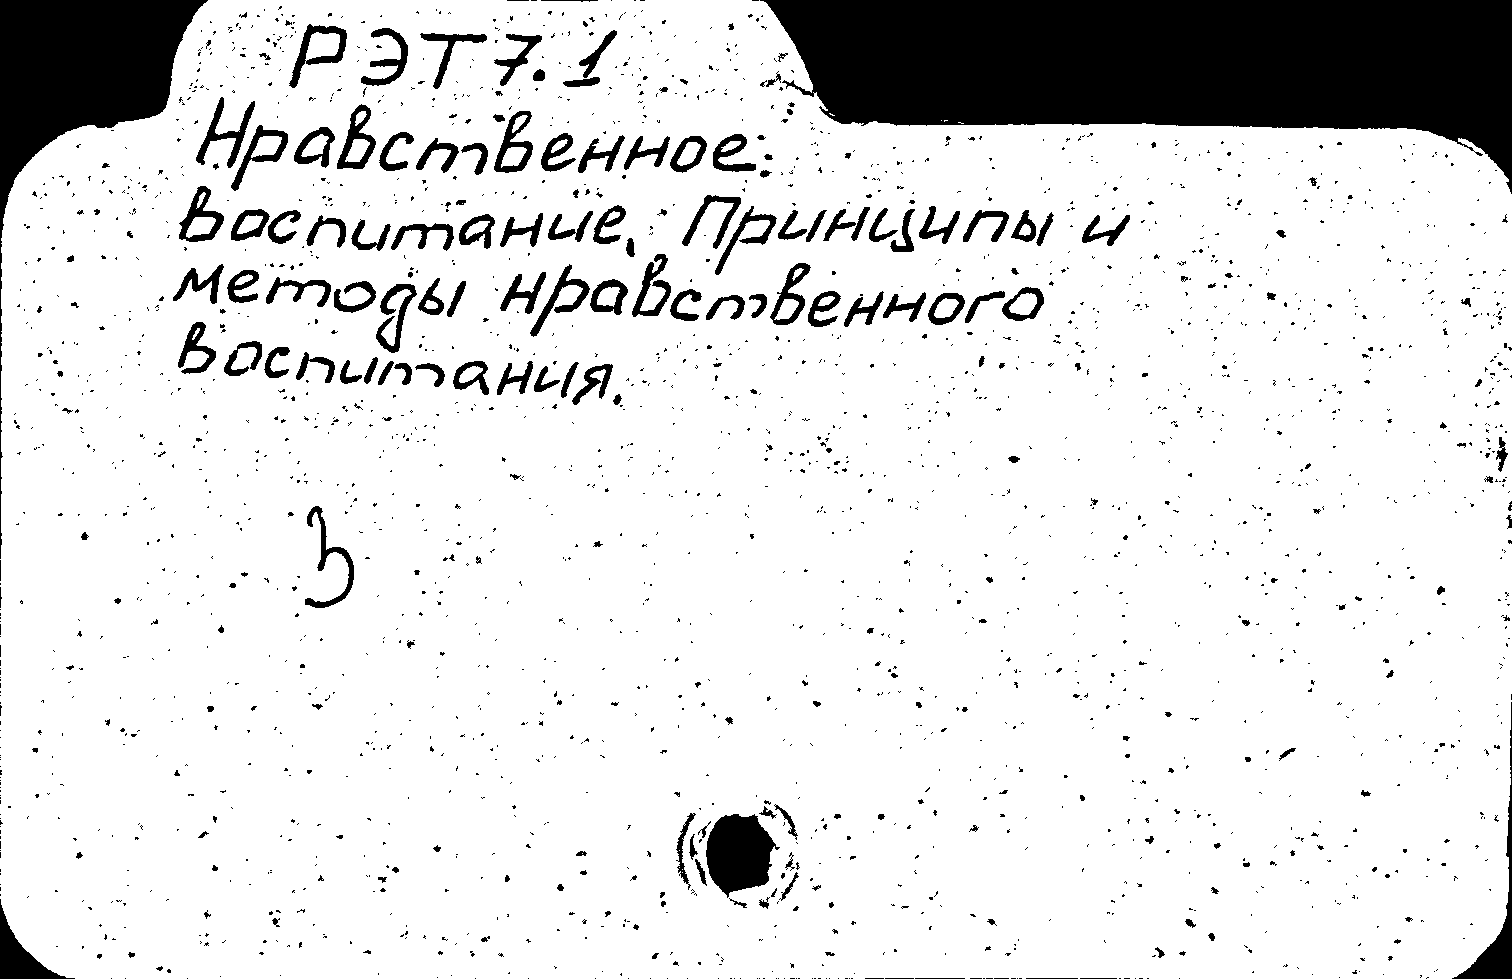 РЭТ 7.1
Нравственное
воспитание. Принципы и
методы нравственного
воспитания.